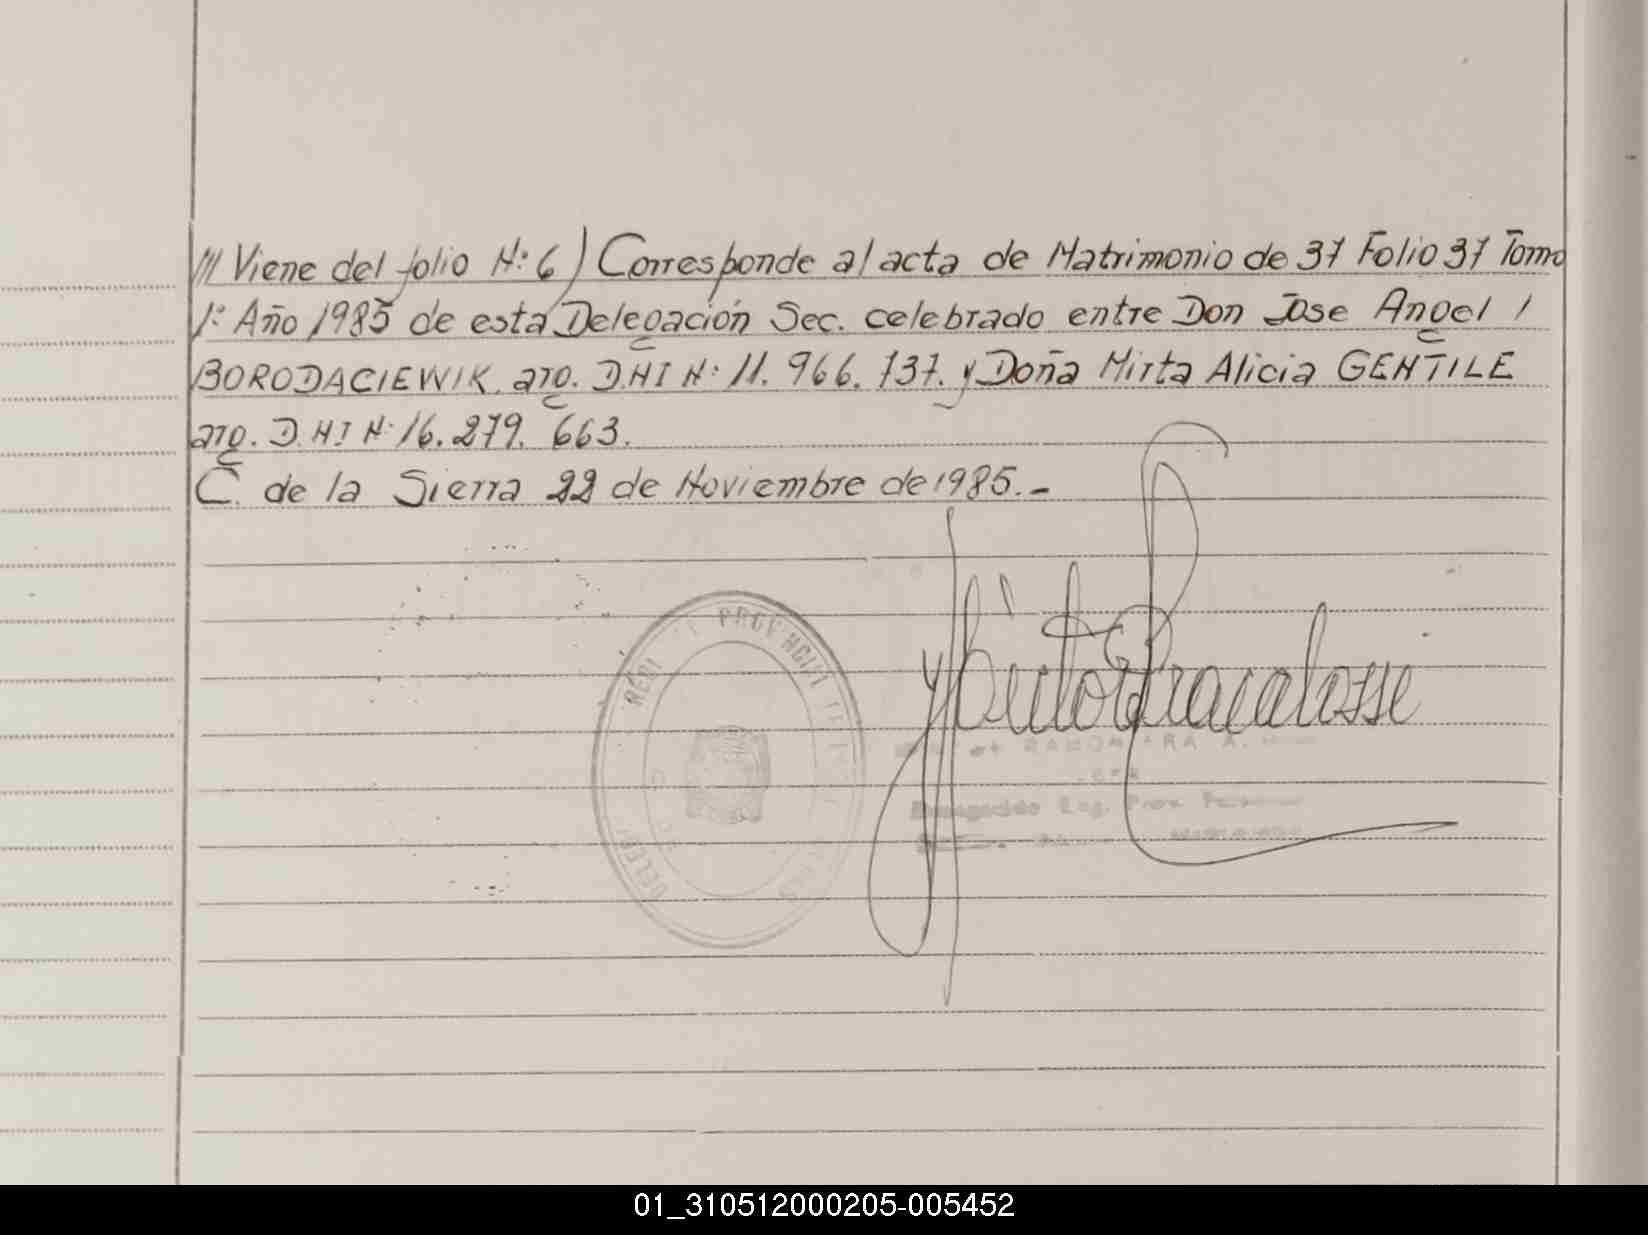 /// Viene del folio N: 6) Corresponde al acta de Matrimonio de 37 Folio 37 Tomo
1: Año 1985 de esta Delegación Sec. celebrado entre Don Jose Angel /
BORODACIEWIK, arg. D.N I N: 11. 966. 737. y Doña Mirta Alicia GENTILE
arg. D.N.I N: 16. 279. 663.
C. de la Sierra 22 de Noviembre de 1985.-
PROVINCIAL
01_310512000205-005452